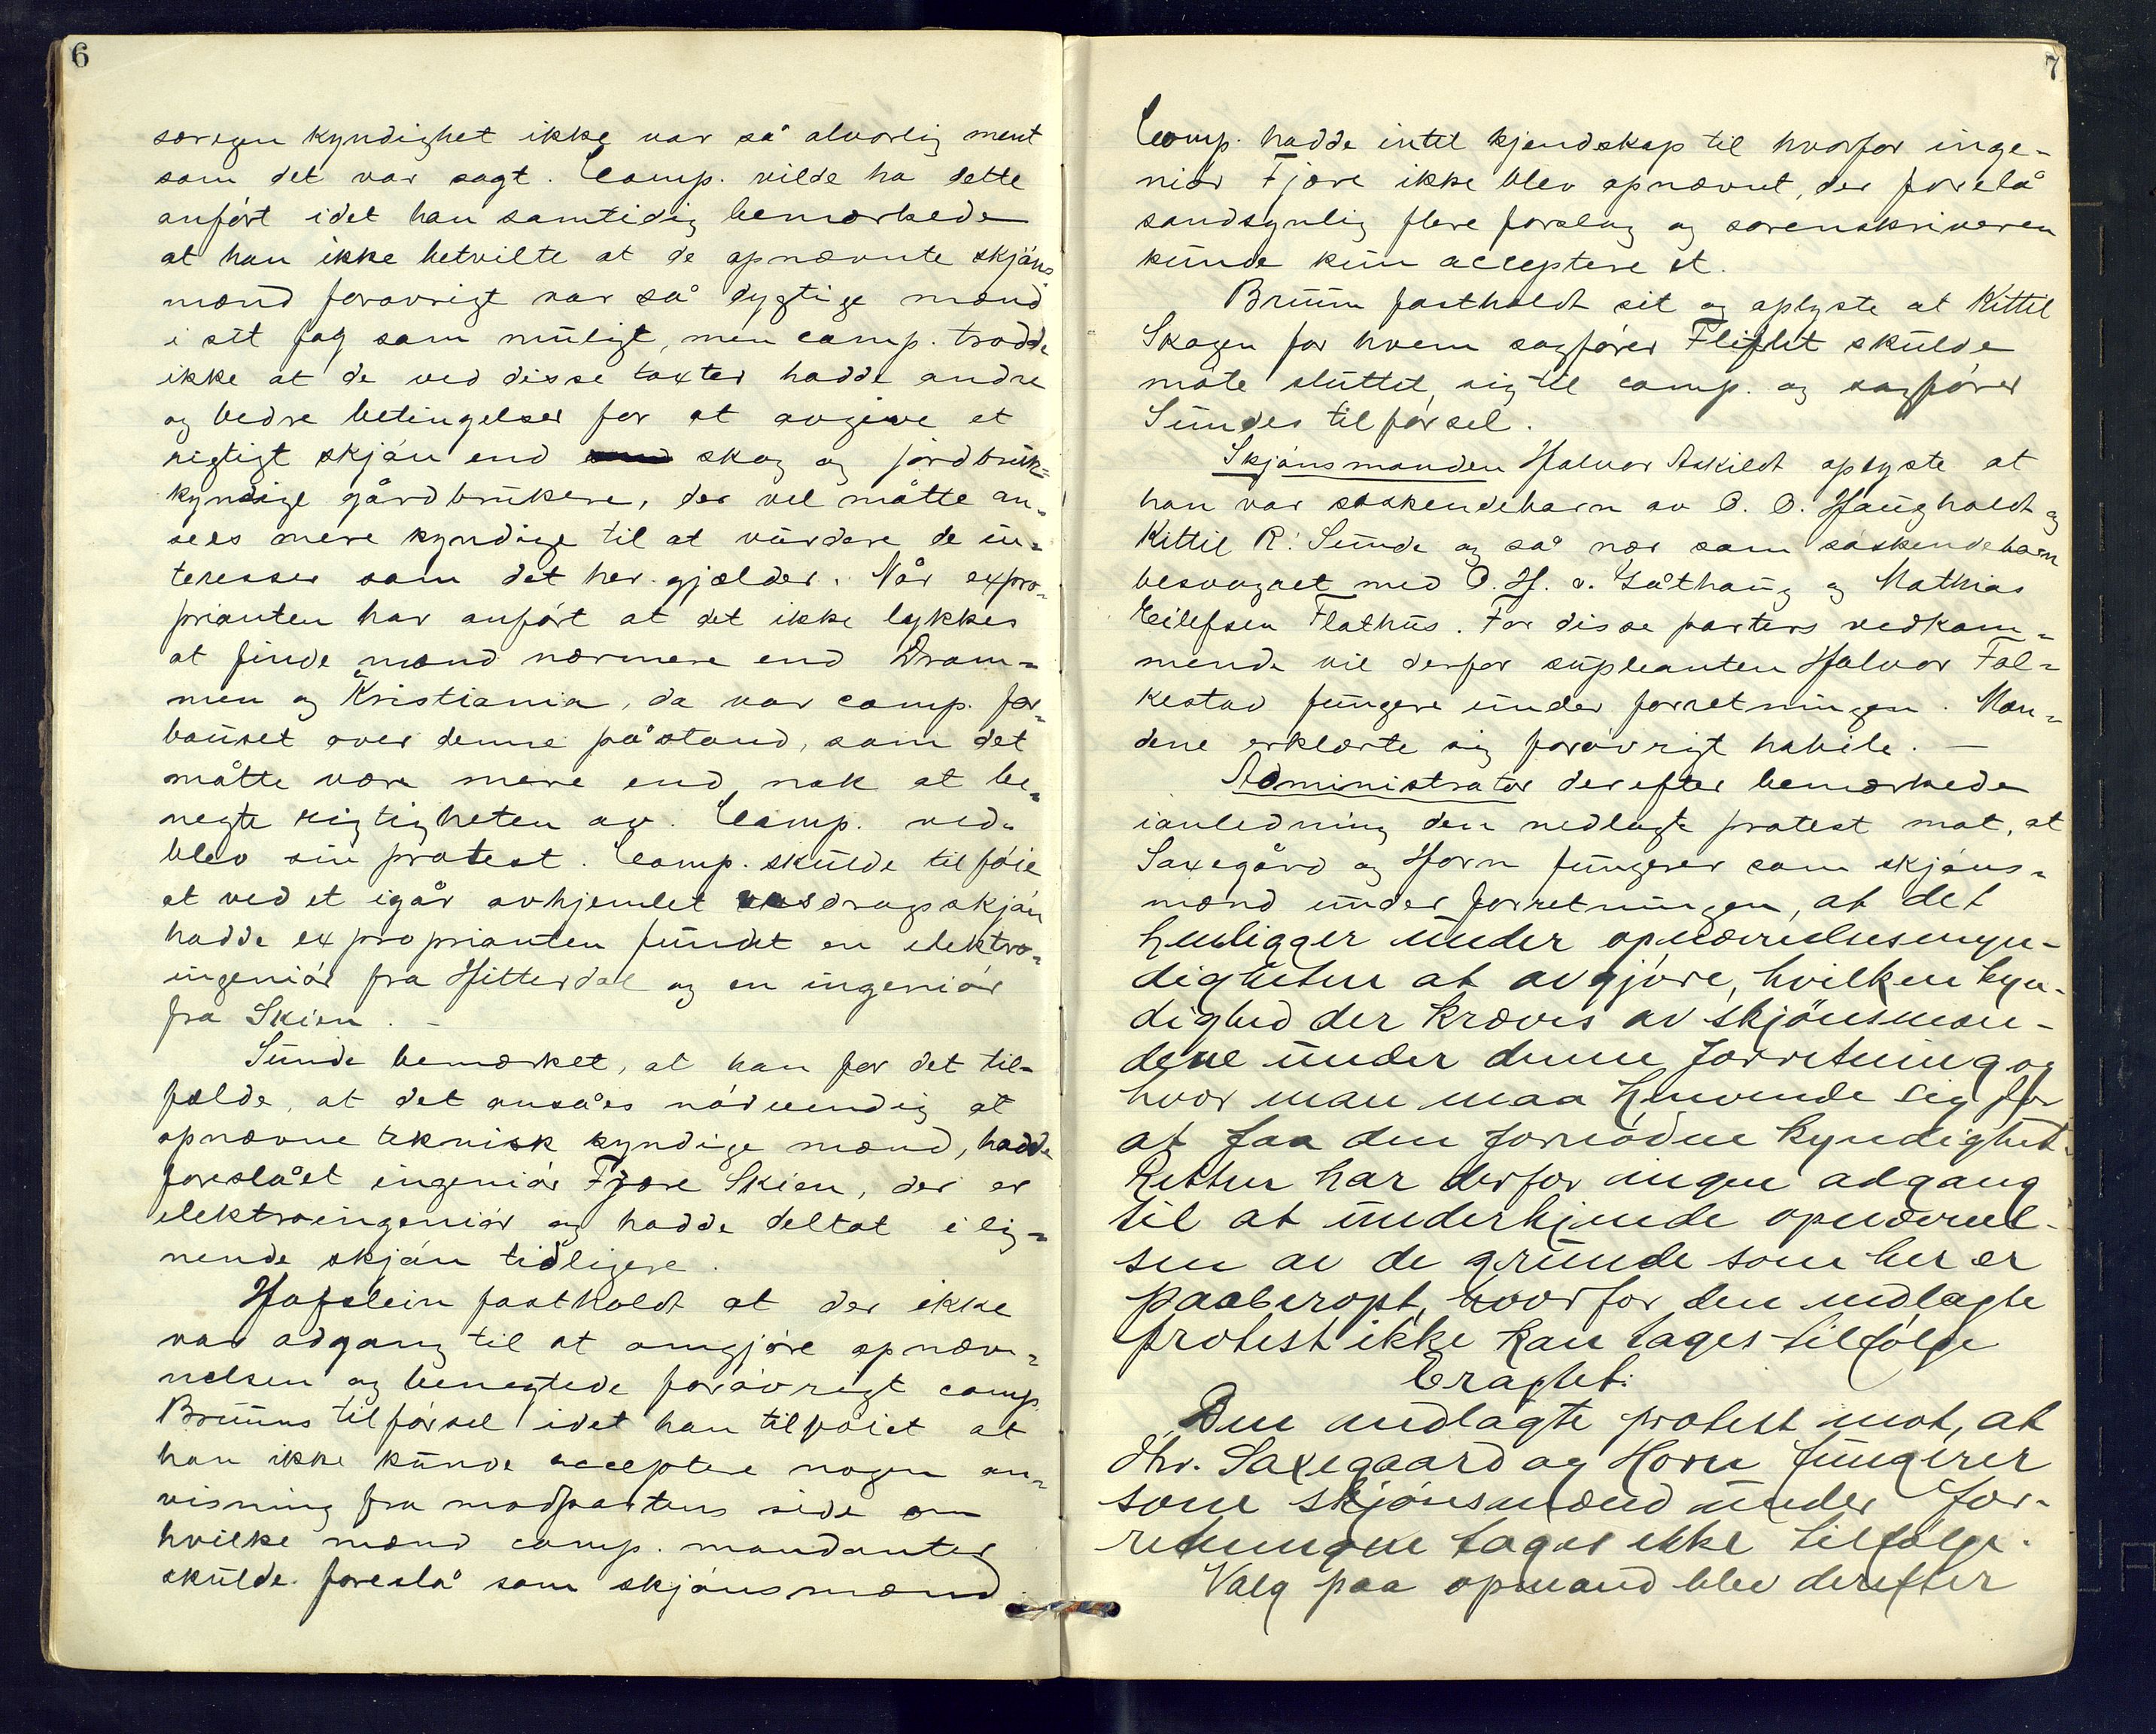 6
særegen kyndighet ikke var så alvorlig ment
som det var sagt. Comp. vilde ha dette
anført idet han samtidig bemærkede
at han ikke betvilte at de opnævnte skjøns
mænd forøvrigt var så dygtige mænd
i sit fag som muligt, men comp. trodde
ikke at de ved disse taxter hadde andre
og bedre betingelser for at avgive et
rigtigt skjøn end skog og jordbruk=
kyndige gårdbrukere, der vel måtte an=
sees mere kyndige til at vurdere de in=
teresser som det her gjælder. Når expro=
prianten har anført at det ikke lykkes
at finde mænd nærmere end Dram=
men og Kristiania, da var comp. for=
bauset over denne påstand, som det
måtte være mere end nok at be=
negte rigtigheten av. Comp. ved=
blev sin protest. Comp. skulde tilføie
at ved et igår avhjemlet vasdragsskjøn
hadde exproprianten fundet en elektro=
ingeniør fra Hitterdal og en ingeniør
fra Skien. –
Sunde bemærket, at han for det til=
fælde, at det ansåes nødvendig at
opnævne teknisk kyndige mænd, hadde
foreslået ingeniør Fjære Skien, der er
elektroingeniør og hadde deltat i lig=
nende skjøn tidligere.
Hofslein fastholdt at der ikke
var adgang til at omgjøre opnæv=
nelsen og benegtede forøvrigt comp.
Bruuns tilførsel idet han tilføiet at
han ikke kunde acceptere nogen an=
visning fra modpartens side om
hvilke mænd comp. mandanter
skulde foreslå som skjønsmænd.
7
Comp. hadde intet kjendskap til hvorfor inge=
niør Fjære ikke blev opnævnt, der forelå
sandsynlig flere forslag og sorenskriveren
kunde kun acceptere et.
Bruun fastholdt sit og oplyste at Kittil
Skogen for hvem sagfører Fliflet skulde
møte sluttet sig til comp. og sagfører
Sundes tilførsel.
Skjønsmanden Halvor Askildt oplyste at
han var søskendebarn av O. O. Haugholdt og
Kittil R. Sunde og så nær som søskendebarn
besvogret med O. H. v. Låthaug og Mathias
Eilefsen Flathus. For disse parters vedkom=
mende vil derfor supleanten Halvor Fol=
kestad fungere under forretningen. Mæn=
dene erklærte sig forøvrigt habile. —
Administrator derefter bemærkede
ianledning den nedlagte protest mot, at
Saxegård og Horn fungerer som skjøns=
mænd under forretningen, at det
henligger under opnævnelsesmyn-
digheten at avgjøre, hvilken kyn-
dighed der kræves av skjønsmæn-
dene under denne forretning og
hvor man maa henvende sig for
at faa den fornødne kyndighet.
Retten har derfor ingen adgang
til at underkjende opnævnel-
sen av de grunde som her er
paaberopt, hvorfor den nedlagte
protest ikke kan tages tilfølge
Eragtet:
Den nedlagte protest mot, at
dhr. Saxegaard og Horn fungerer
som skjønsmænd under for-
retningen tages ikke tilfølge.
Valg paa opmand blev derefter